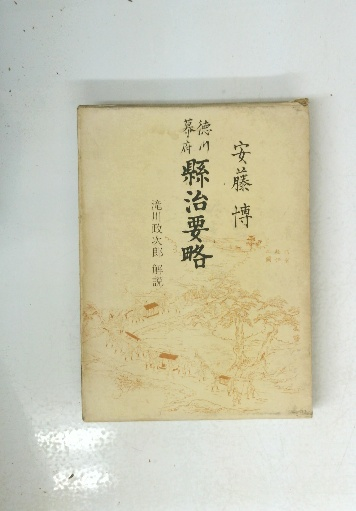 安藤博
徳川
幕府
縣治要略
滝川政次郎 解説